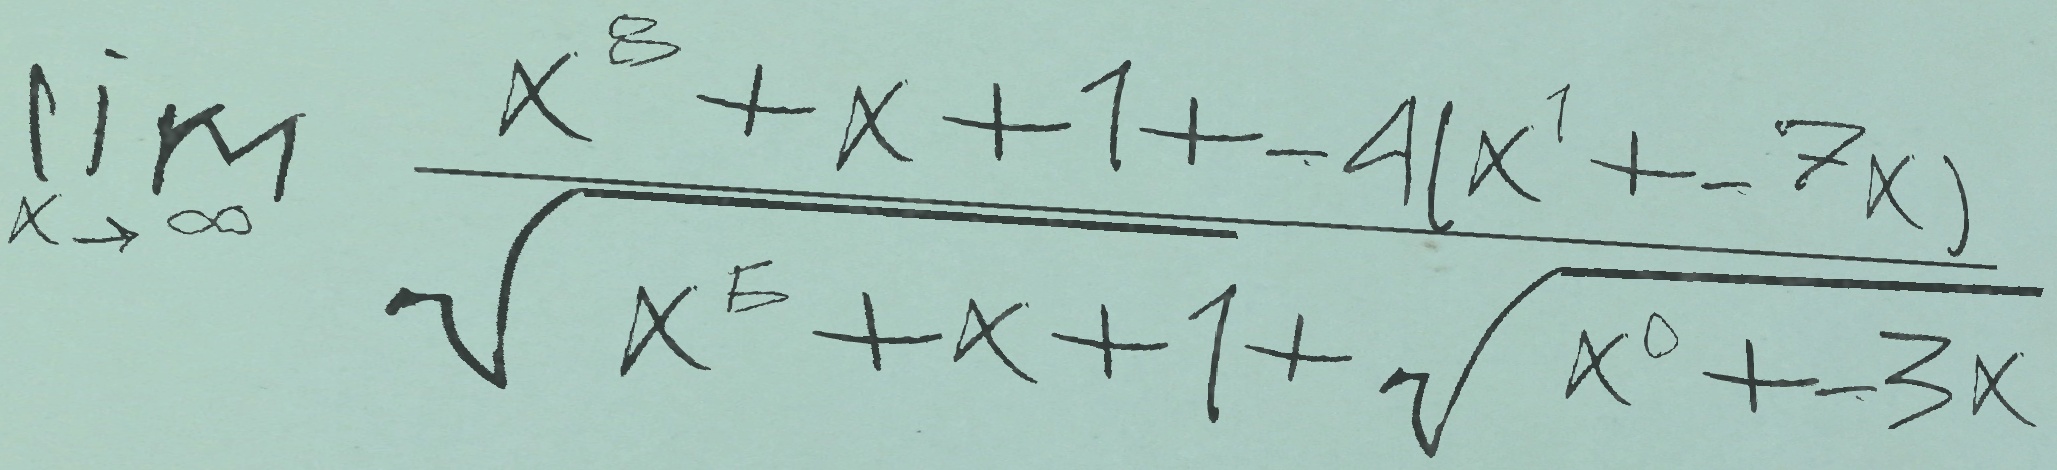 \lim_{x \to \infty} \frac{x^8 + x + 1 + -4(x^1 + -7x)}{\sqrt{x^5 + x + 1} + \sqrt{x^0 + -3x}}